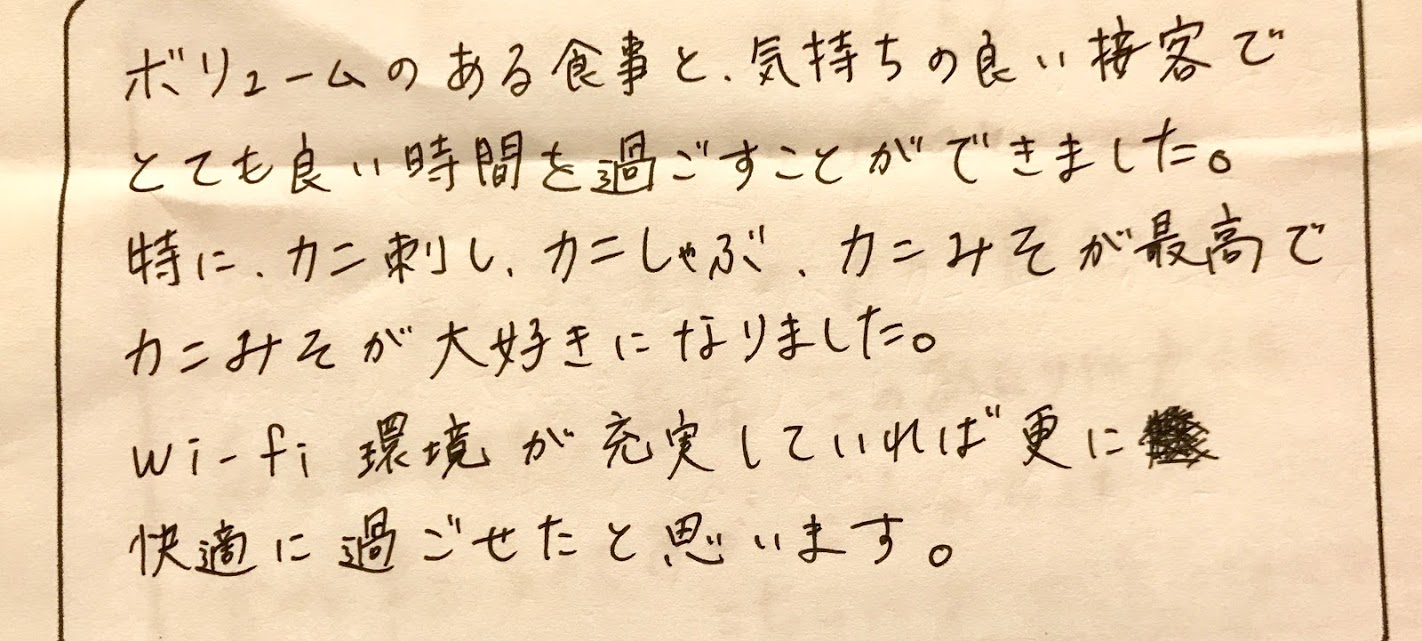 ボリュームのある食事と、気持ちの良い接客で
とても良い時間を過ごすことができました。
特に、カニ刺し、カニしゃぶ、カニみそが最高で
カニみそが大好きになりました。
Wi-fi 環境が充実していれば更に
快適に過ごせたと思います。